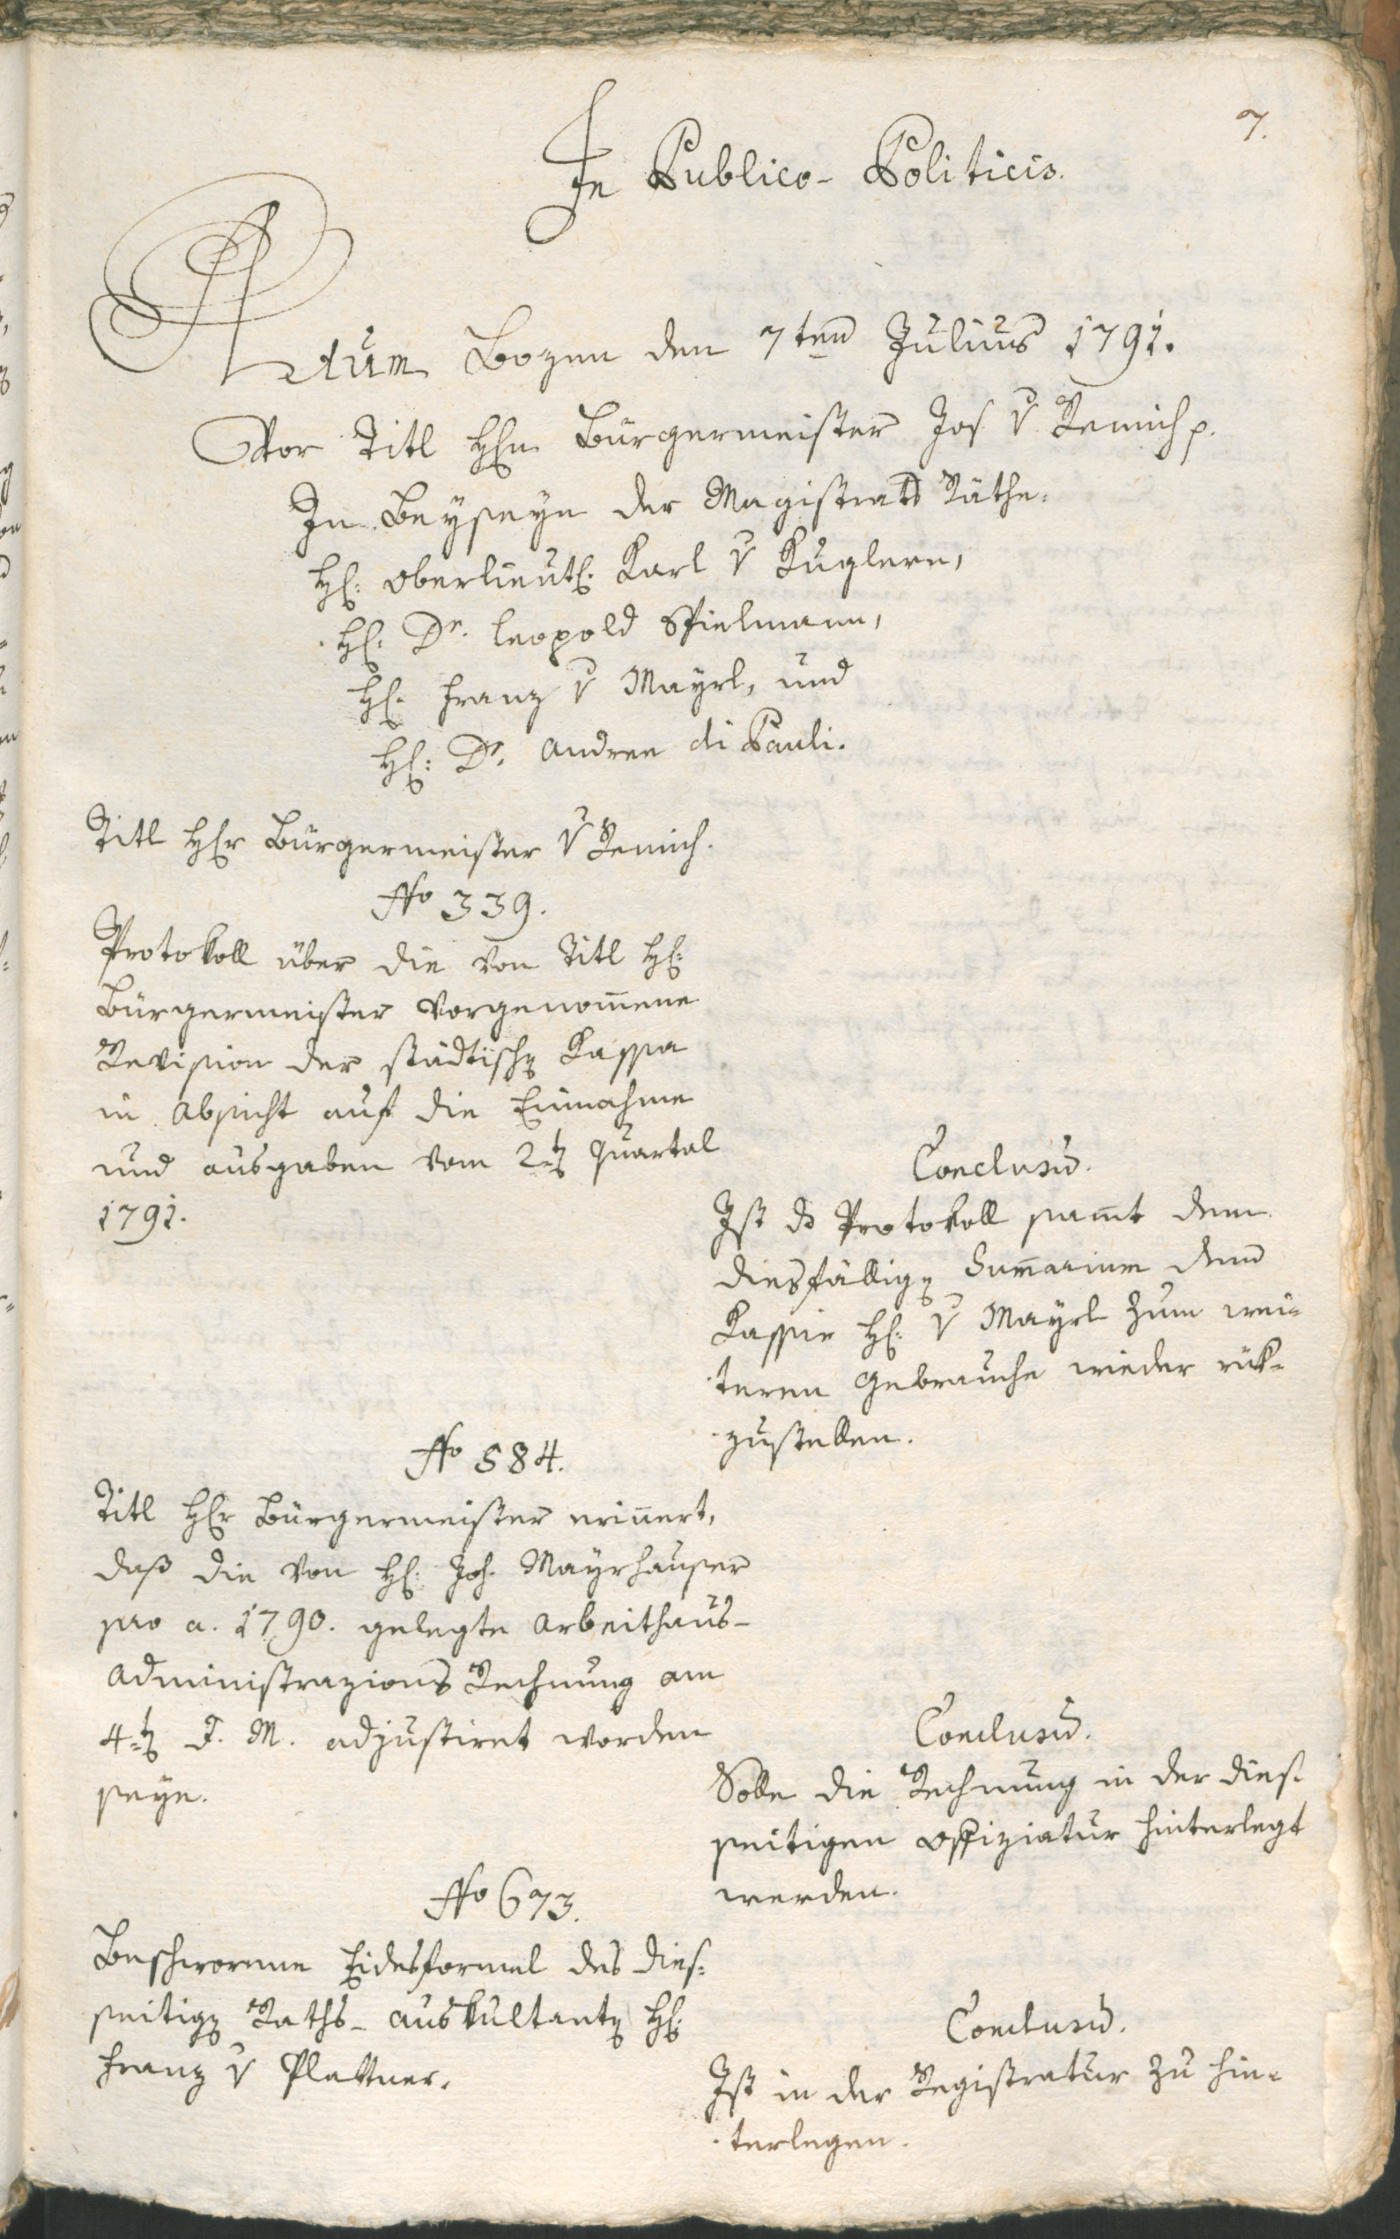 7.
In Publico-Politicis.
Actum Bozen den 7ten Julius 1791.
Vor Titl H̄n Bürgermeister Jos v Remich p.
In Beyseyn der Magistrats Räthe.
H: Oberlieut: Karl v Kuglern,
H: Dr. Leopold Spielmann,
H: Franz v Mayrl, und
H: Dr. Andree di Pauli.
Titl Hr Bürgermeister v Remich.
No 339.
Protokoll über die von Titl H:
Bürgermeister vorgenom̄ene
Revision der städtisch Kassa
in Absicht auf die Einnahme
und Ausgaben vom 2t Quartal
1791.
Conclusū.
Ist ds Protokoll sam̄t dem
diesfällig Sum̄arium dem
Kassie H: v Mayrl zum wei-
teren Gebrauche wieder rük-
zustellen.
No 584.
Titl Hr Bürgermeister erin̄ert,
daß die von H: Joh. Mayrhauser
pro a. 1790. gelegte Arbeithaus-
Administrazions Rechnung am
4t d. M. adjustiret worden
seye.
Conclusū.
Solle die Rechnung in der dies-
seitigen Offiziatur hinterlegt
werden.
No 673.
Beschworene Eidesformel des dies-
seitig Raths-Auskultant H:
Franz v Plattner.
Conclusū.
Ist in der Registratur zu hin-
terlegen.